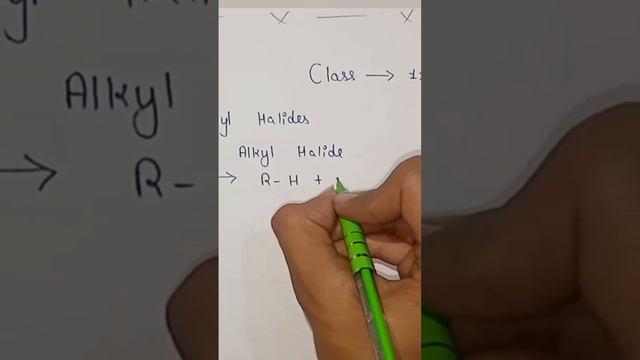 Class → 1
yl Halides
Alkyl Halide
→ R - H +
Alkyl
→ R -